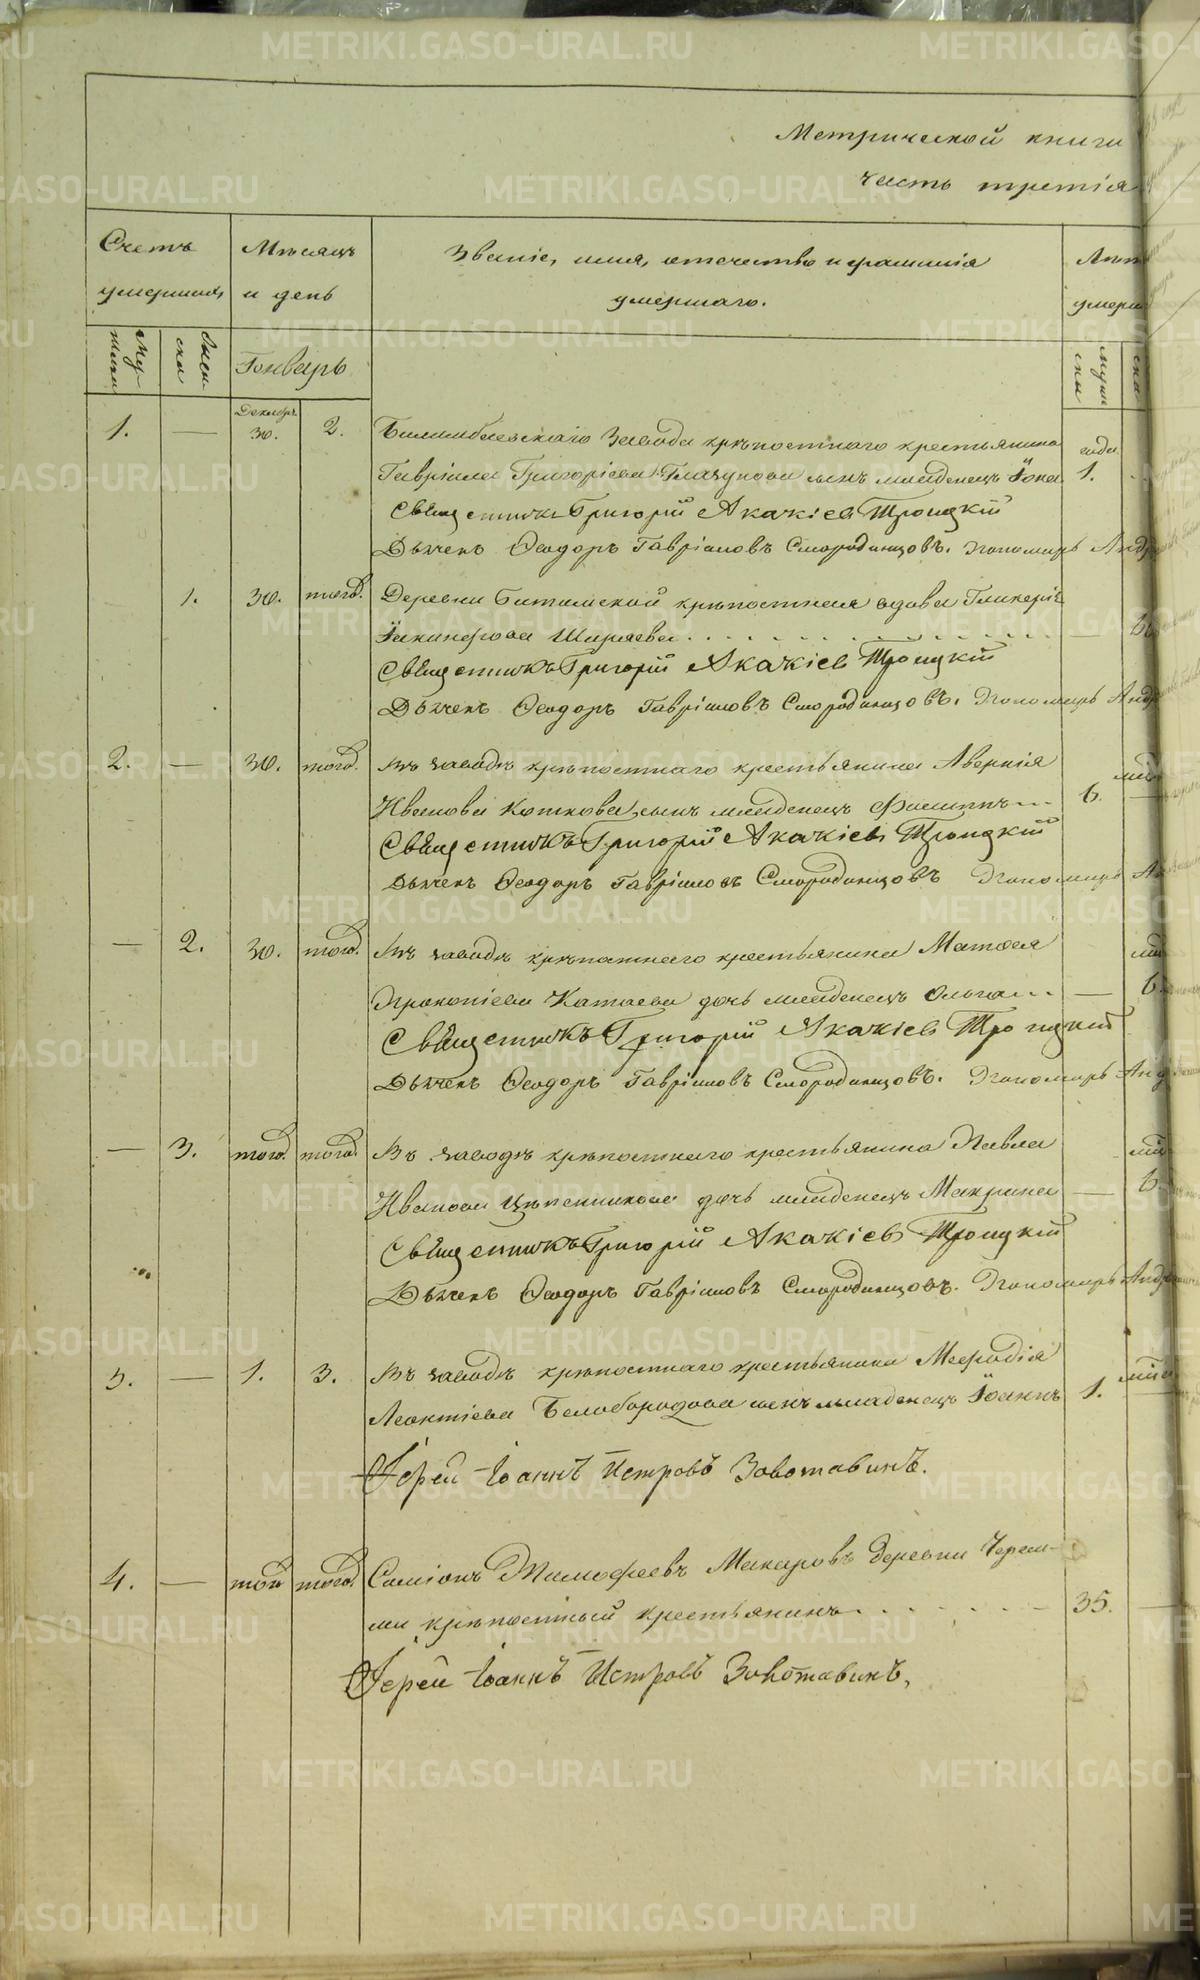 METRIKI.GASO-URAL.RU
Метрической книги
часть третія
Счетъ умершихъ
Мѣсяцъ и день
Званіе, имя, отечество и фамилія умершаго.
Лѣт
умерш
Генварь
1. — Декабря 30. 2. Билимбаевскаго завода крѣпостнаго крестьянина года
Гавріила Григоріева Глазунова сынъ младенецъ Іона 1.
Священникъ Григорій Акакіевъ Троицкій
Дьяченъ Ѳеодоръ Гавріиловъ Смородинцовъ. Пономарь Андр
1. 30. тогож. Деревни Битимской крѣпостная вдова Гликерія
Іакинфова Ширяева
Священникъ Григорій Акакіевъ Троицкій
Дьяченъ Ѳеодоръ Гавріиловъ Смородинцовъ. Пономарь Андр
2. — 30. тогож. Въ заводѣ крѣпостнаго крестьянина Аверкія
Иванова Коткова сынъ младенецъ Филиппъ 6.
Священникъ Григорій Акакіевъ Троицкій
Дьяченъ Ѳеодоръ Гавріиловъ Смородинцовъ Пономарь Ан
— 2. 30. тогож. Въ заводѣ крѣпостнаго крестьянина Матѳея
Прокопіева Катаева дочь младенецъ Ольга — 6.
Священникъ Григорій Акакіевъ Троицкій
Дьяченъ Ѳеодоръ Гавріиловъ Смородинцовъ. Пономарь Анд
— 3. тогож. тогож. Въ заводѣ крѣпостнаго крестьянина Павла
Иванова дочь младенецъ Макрина — 6.
Священникъ Григорій Акакіевъ Троицкій
Дьяченъ Ѳеодоръ Гавріиловъ Смородинцовъ. Пономарь Андр
3. — 1. 3. Въ заводѣ крѣпостнаго крестьянина Меѳодія
Леонтіева Белобородова сынъ младенецъ Іоаннъ 1.
Іерей Іоаннъ Петровъ Золотавинъ.
4. — тогож. тогож. Симіонъ Тимофеевъ Макаровъ деревни Черем-
ши крѣпостный крестьянинъ 35.
Іерей Іоаннъ Петровъ Золотавинъ.